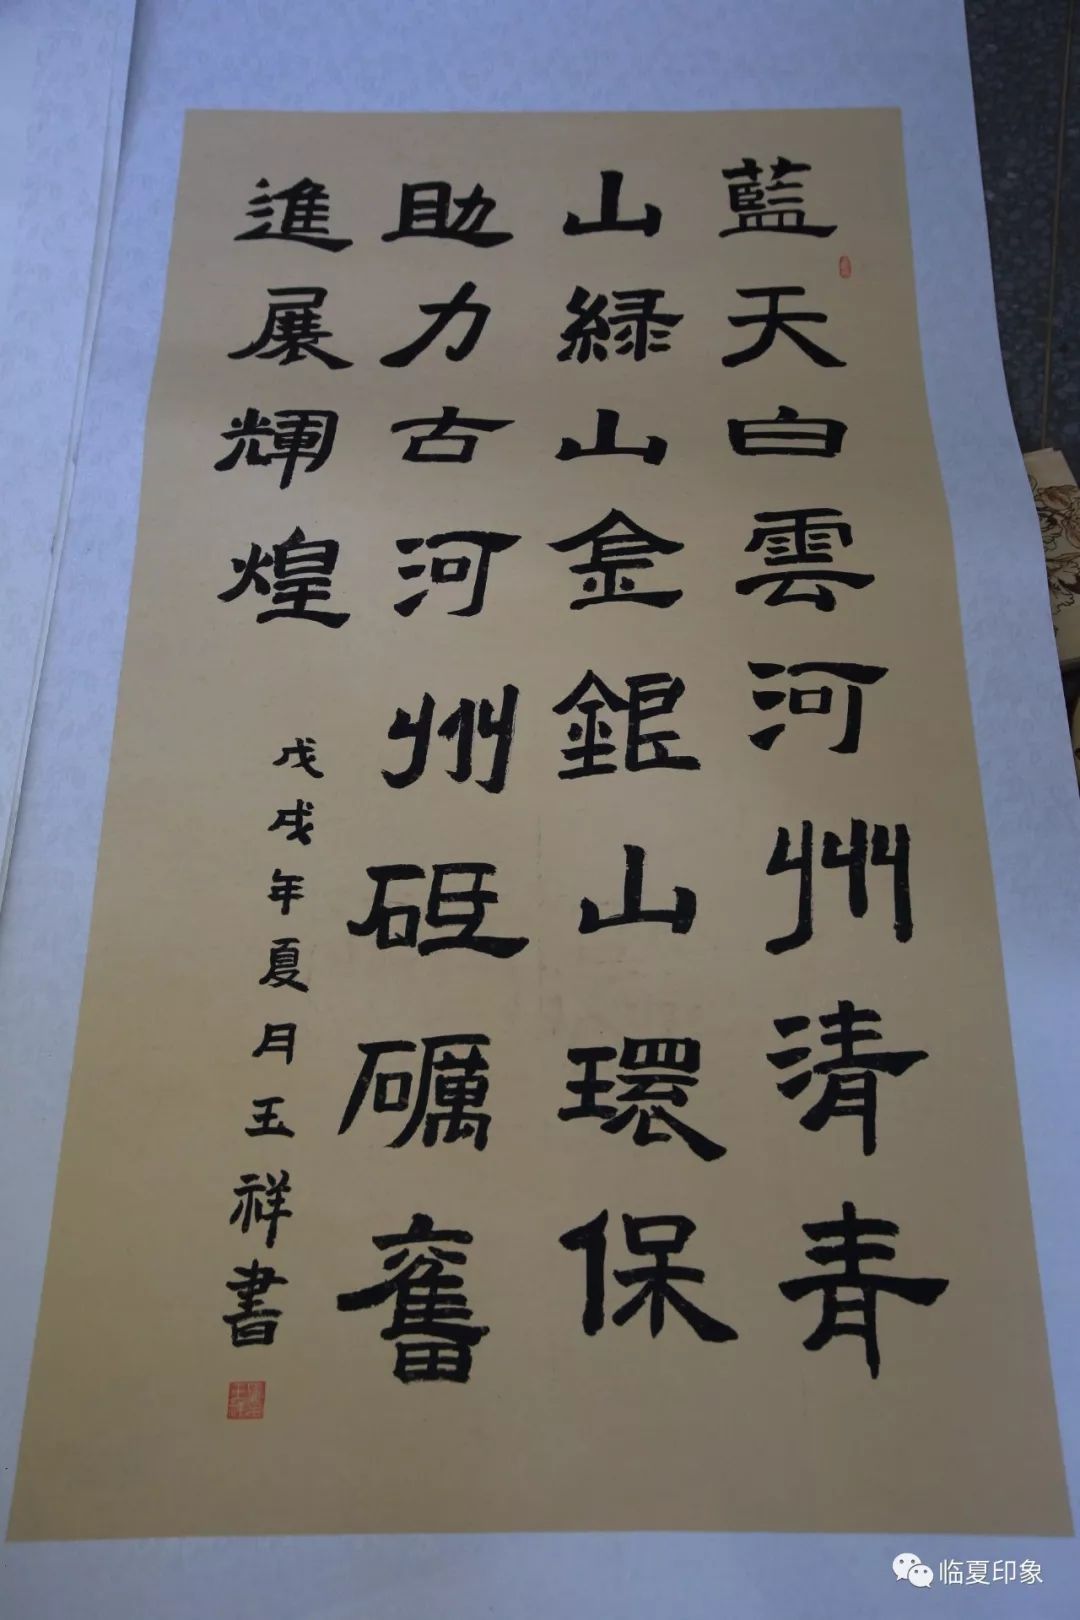 藍天白雲河州清青
山綠山金銀山環保
助力古河州砥礪奮
進展輝煌
戊戌年夏月玉祥書
临夏印象